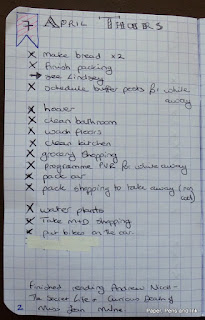 7 April Thurs
x make bread x2
x finish packing
→ see Lindsey
x schedule buffer posts for while
away
x hoover
x clean bathroom
x wash floors
x clean kitchen
x grocery shopping
x programme PVR for while away
x pack car
x pack shopping to take away (my
x water plants
x Take M+D shopping
x put bikes on the car.
Finished reading Andrew Nicoll -
The Secret Life & Curious Death of
Miss Jean Milne.
2
Paper, Pens and Ink